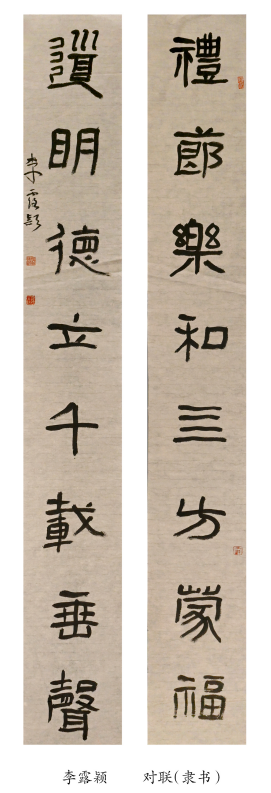 禮節樂和三方蒙福
道明德立千載垂聲
李露颖
李露颖 对联(隶书)